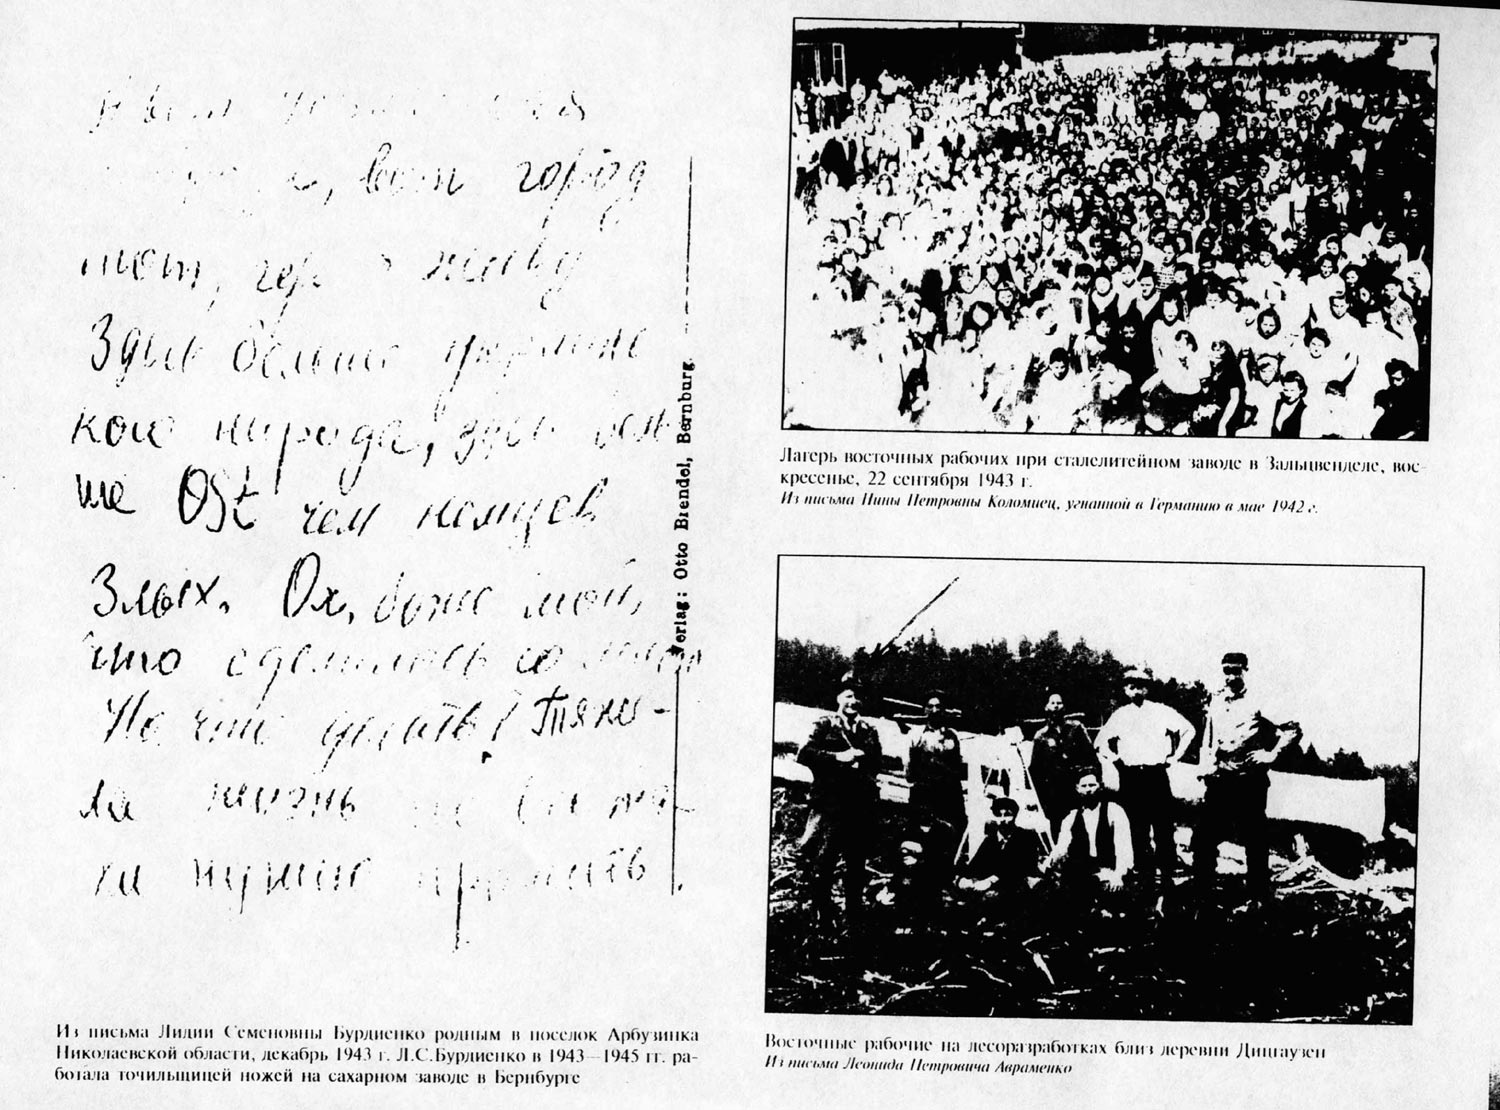 , вот город
тот, где живу
Здесь больше украинс
кого народа, здесь боль
ше Ost чем немцев
Злых. Ох, боже мой,
что сделалось со мной
Но что делать? Тяже-
ла жизнь но
ки нужно прожить.
Verlag: Otto Brendel, Bernburg
Из письма Лидии Семеновны Бурдиенко родным в поселок Арбузинка
Николаевской области, декабрь 1943 г. Л.С.Бурдиенко в 1943—1945 гг. ра-
ботала точильщицей ножей на сахарном заводе в Бернбурге
Лагерь восточных рабочих при сталелитейном заводе в Зальцвенделе, вос-
кресенье, 22 сентября 1943 г.
Из письма Нины Петровны Коломиец, угнанной в Германию в мае 1942 г.
Восточные рабочие на лесоразработках близ деревни Дицгаузен
Из письма Леонида Петровича Авраменко